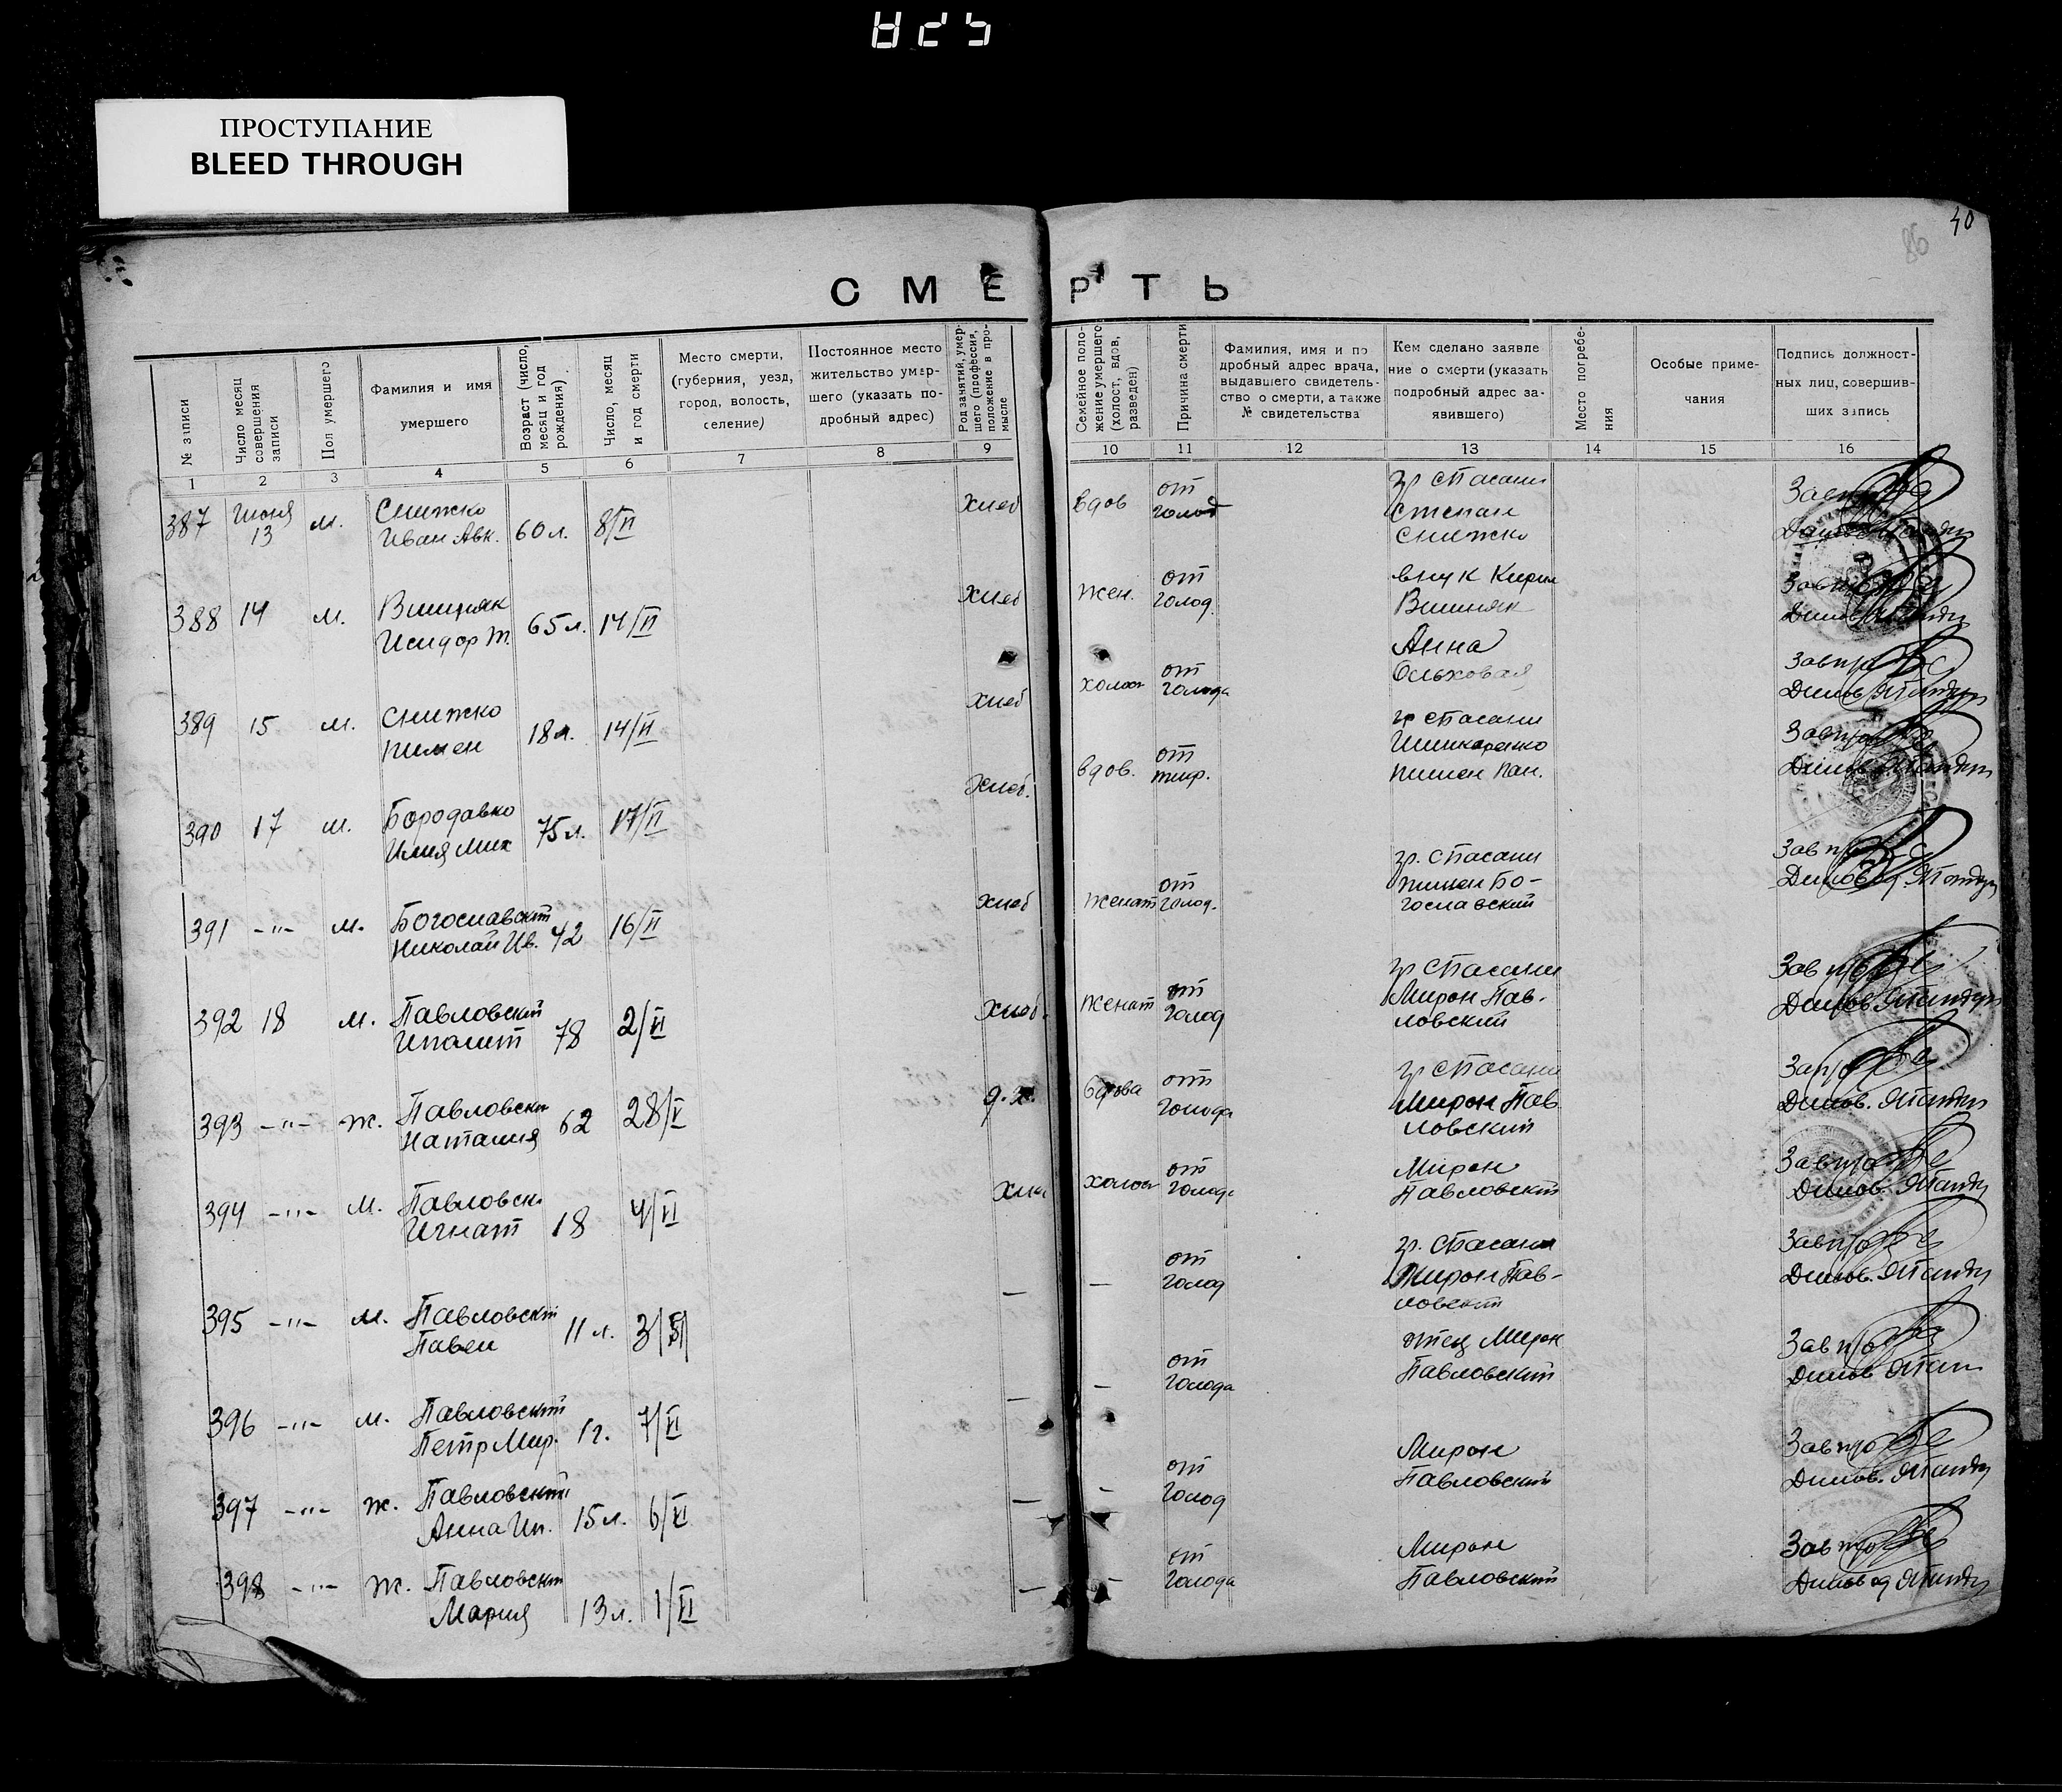 825
ПРОСТУПАНИЕ
BLEED THROUGH
40
86
СМЕРТЬ
№ записи
Число месяц совершения записи
Пол умершего
Фамилия и имя
умершего
Возраст (число, месяц и год рождения)
Число, месяц и год смерти
Место смерти,
(губерния, уезд,
город, волость,
селение)
Постоянное место
жительство умер-
шего (указать по-
дробный адрес)
Род занятий, умер-
шего (профессия,
положение в про-
мысле
Семейное поло-
жение умершего
(холост, вдов,
разведен)
Причина смерти
Фамилия, имя и по
дробный адрес врача,
выдавшего свидетель-
ство о смерти, а также
№ свидетельства
Кем сделано заявле
ние о смерти (указать
подробный адрес за-
явившего)
Место погребе-
ния
Особые приме-
чания
Подпись должност-
ных лиц, совершив-
ших запись
1 2 3 4 5 6 7 8 9 10 11 12 13 14 15 16
387 Июня 13 м. Снижко
Иван Авк. 60 л. 8/VI хлеб вдов от
голод гр Спасани
Степан
Снижко
388 14 м. Вишняк
Исидор Т. 65 л. 14/VI хлеб жен. от
голод. внук Кирил
Вишняк
389 15 м. Снижко
Пимен 18 л. 14/VI хлеб холост от
голода Анна
Ольховая
390 17 м. Бородавко
Илия Мих 75 л. 17/VI хлеб. вдов. от
тиф. гр Спасани
Шинкаренко
Пимен Пан.
391 -"- м. Богославский
Николай Ив. 42 16/VI хлеб женат от
голод. гр. Спасани
Пимен Бо-
гославский
392 18 м. Павловский
Иполит 78 2/VI хлеб. женат от
голод гр Спасани
Мирон Пав-
ловский
393 -"- ж. Павловск
Наталия 62 28/V д.х. вдова от
голода гр Спасани
Мирон Пав
ловский
394 -"- м. Павловск
Игнат 18 4/VI хлеб холост от
голода Мирон
Павловский
395 -"- м. Павловский
Павел 11 л. 3/VI — — от
голод гр. Спасани
Мирон Пав-
ловский
396 -"- м. Павловский
Петр Мир. 1 г. 7/VI — — от
голода отец Мирон
Павловский
397 -"- ж. Павловский
Анна Ип. 15 л. 6/VI — — от
голод Мирон
Павловский
398 -"- ж. Павловский
Мария 13 л. 1/VI — — от
голода Мирон
Павловский